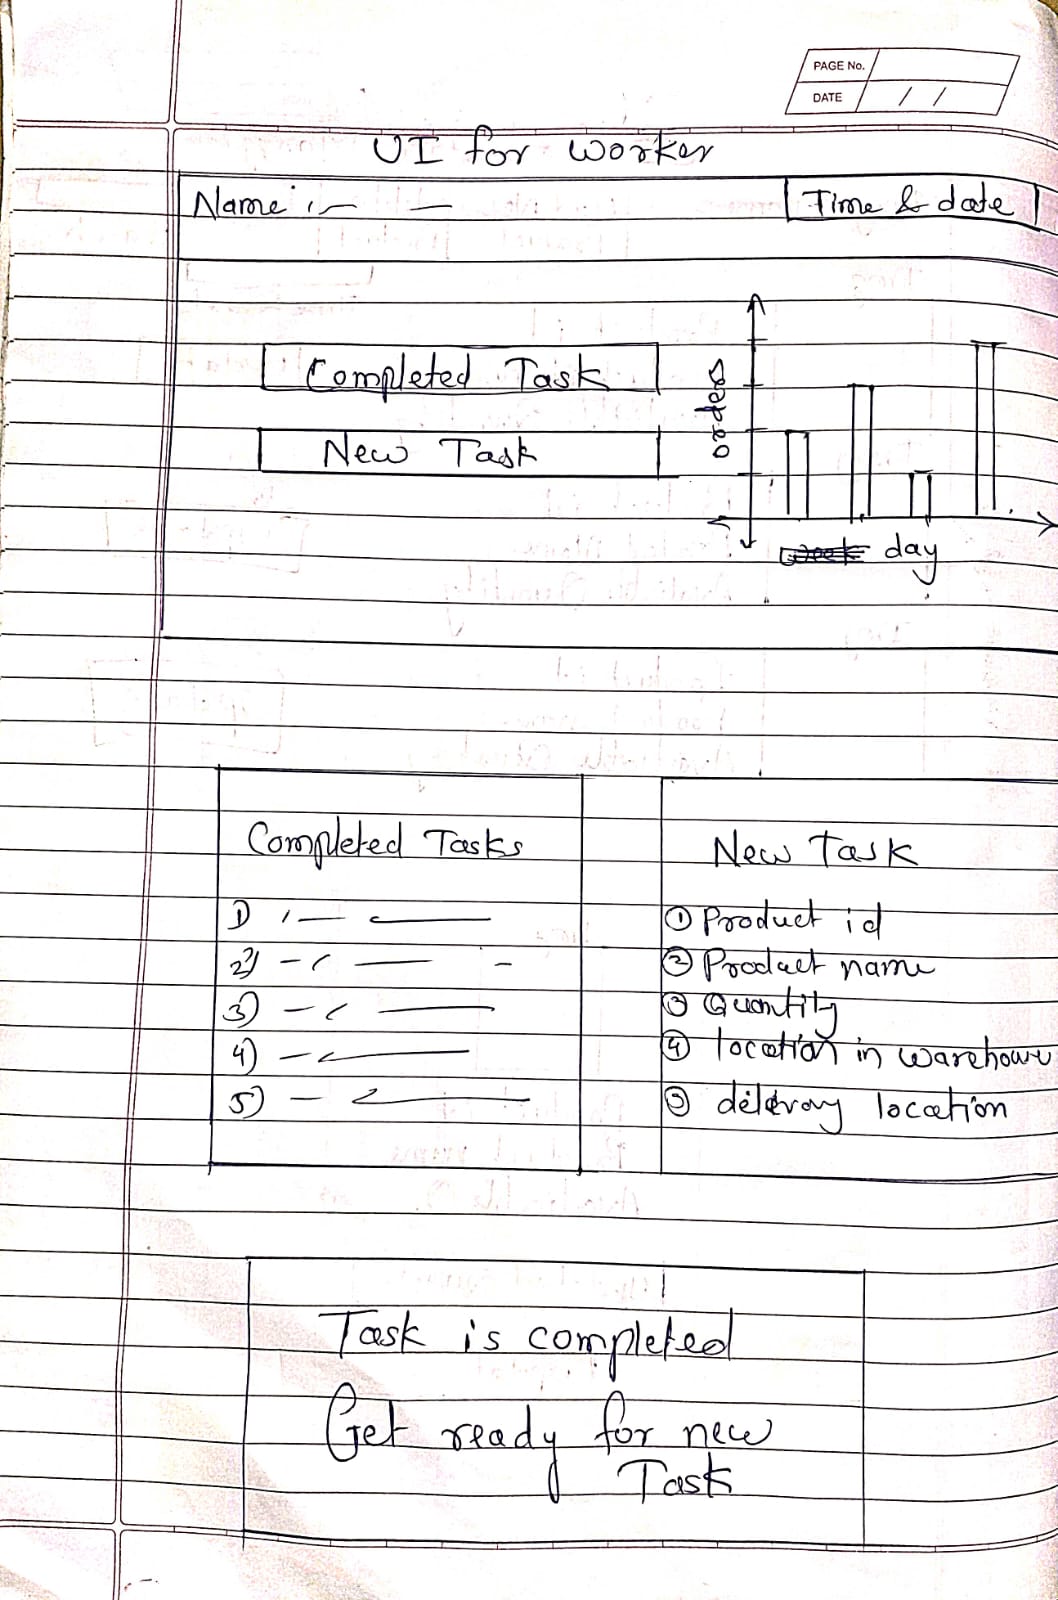 PAGE No.
DATE / /
UI for worker
Name :- —
Time & date
Completed Task
New Task
orders
day
Completed Tasks
1)
2)
3)
4)
5)
New Task
① Product id
② Product name
③ Quantity
④ location in warehouse
⑤ location
Task is completed
Get ready for new
Task